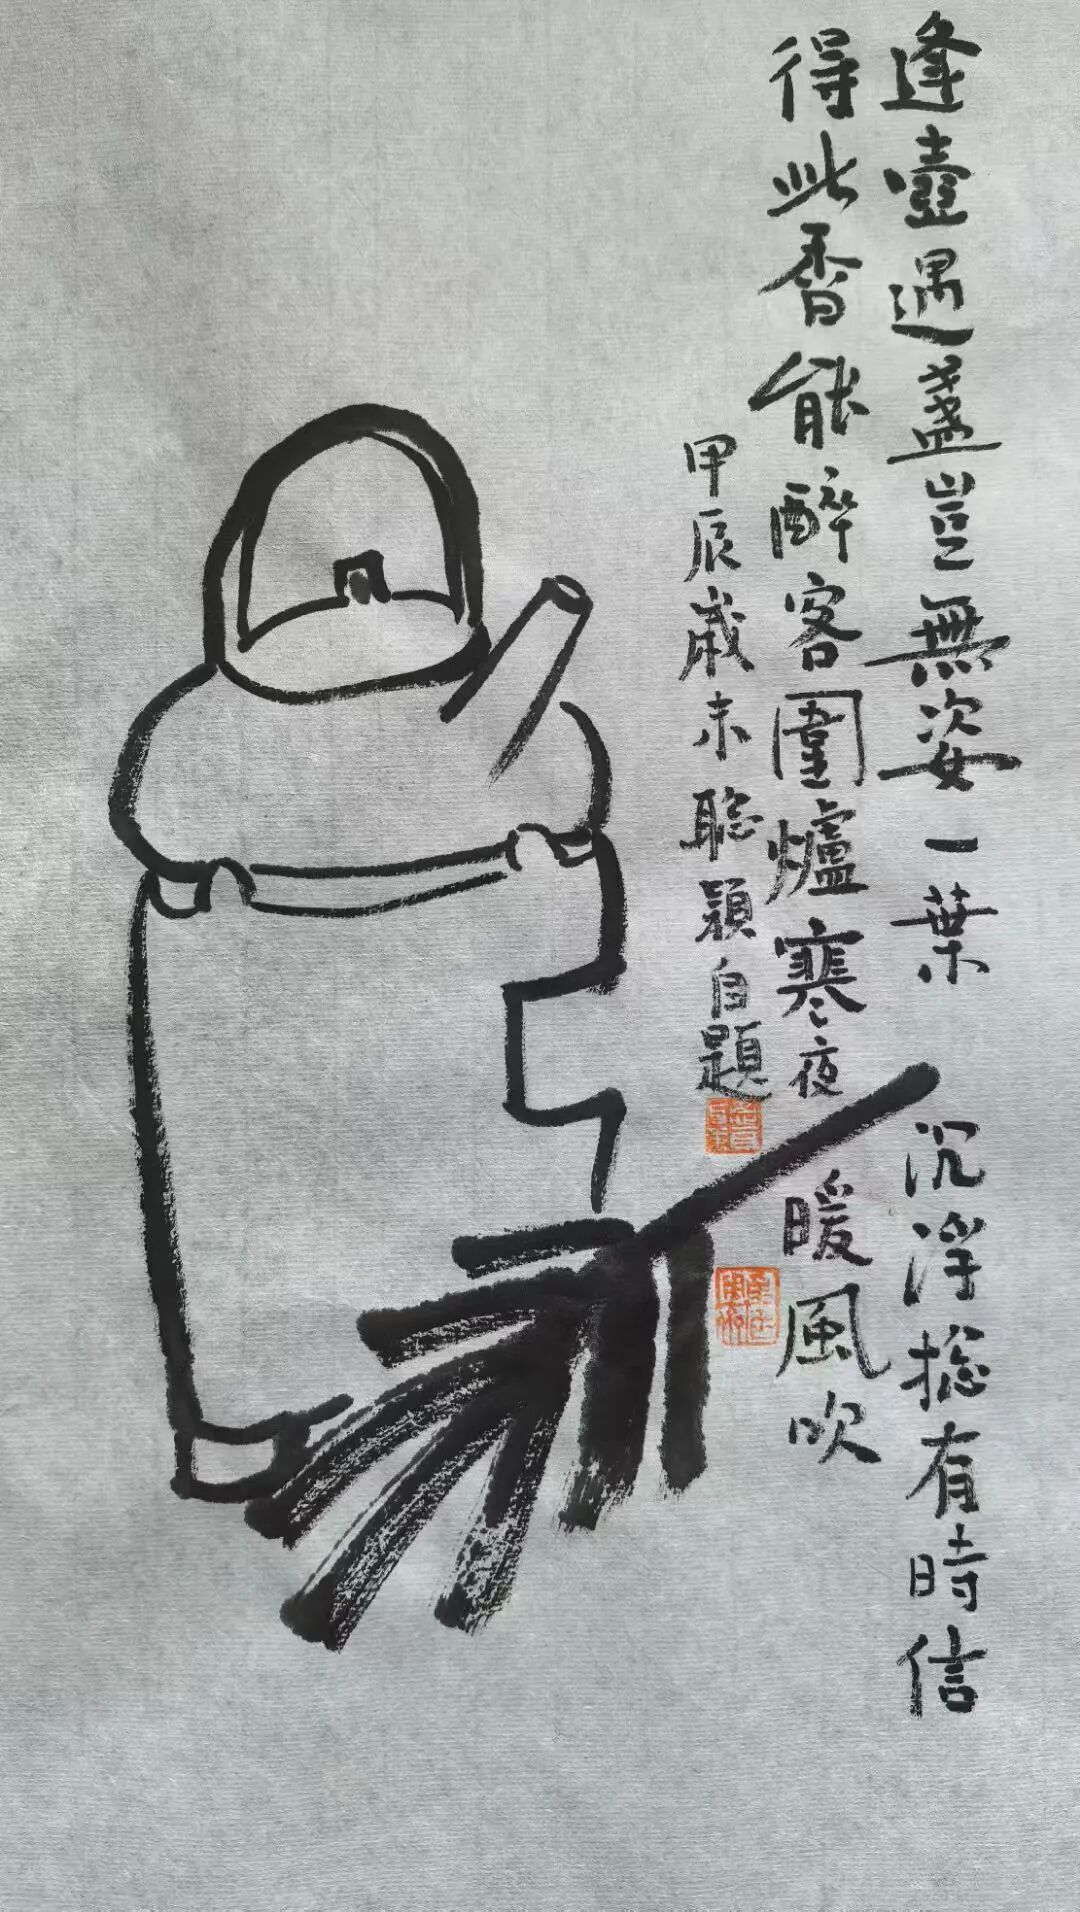 逢壺遇盞豈無姿一葉沉浮總有時信
得此香能醉客圍爐寒夜暖風吹
甲辰歲末聪颖自題